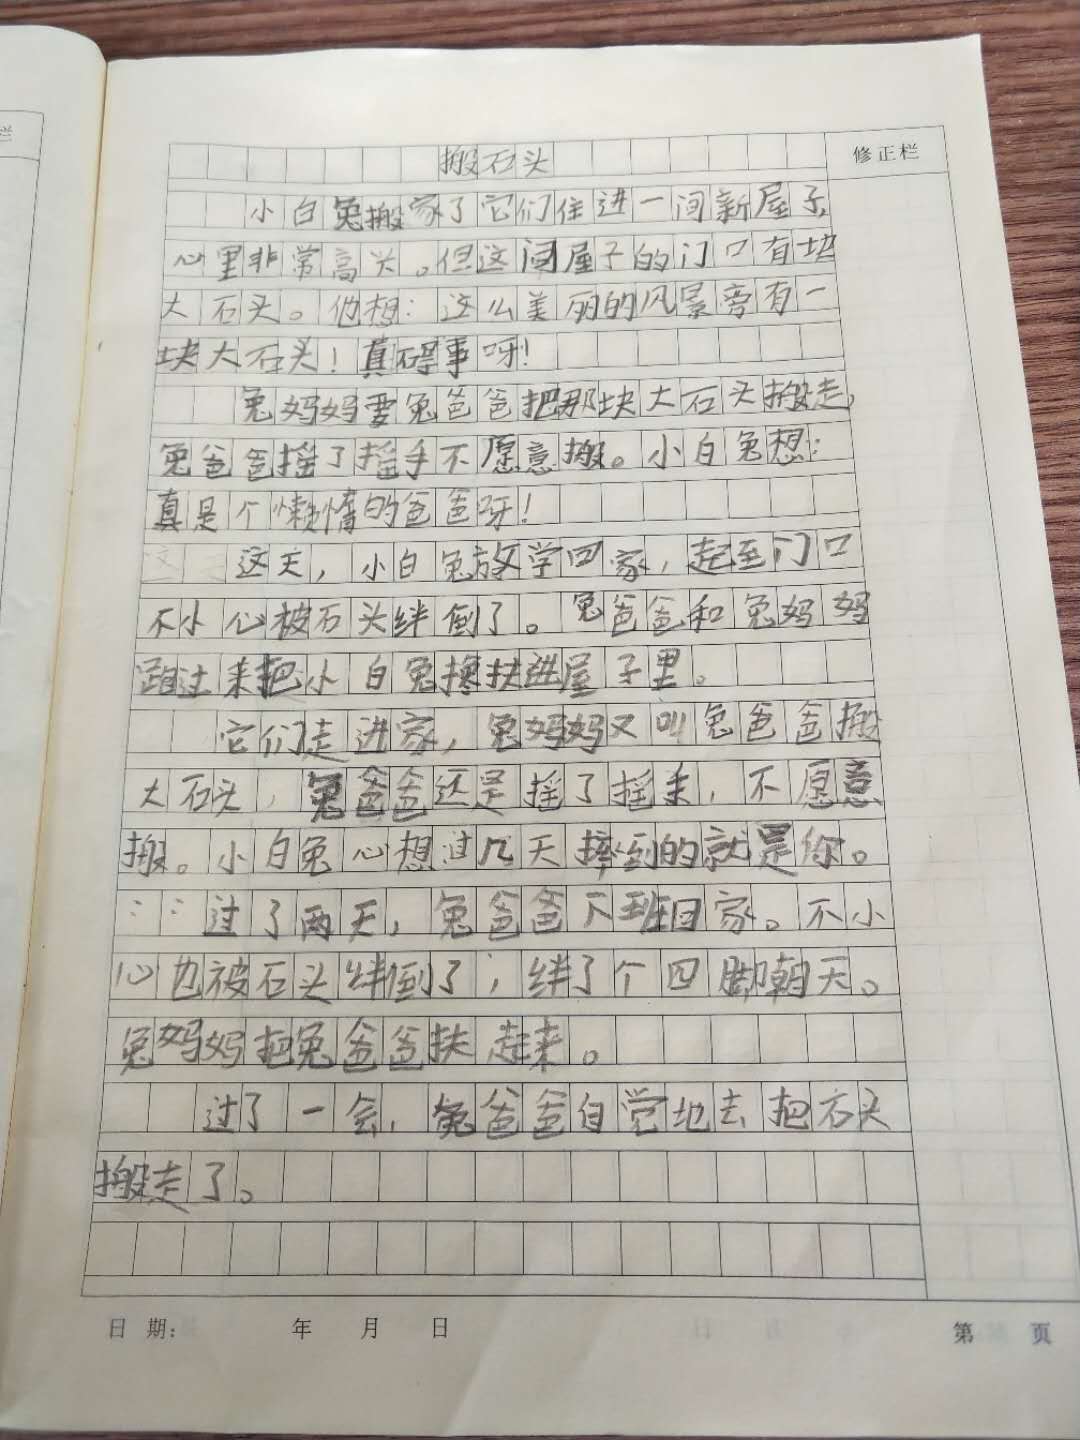 栏
修正栏
搬石头
小白兔搬家了它们住进一间新屋子,
心里非常高头。但这间屋子的门口有块
大石头。他想:这么美丽的风景旁有一
块大石头!真碍事呀!
兔妈妈要兔爸爸把那块大石头搬走,
兔爸爸摇了摇手不愿意搬。小白兔想:
真是个懒惰的爸爸呀!
这天,小白兔放学回家,起至门口
不小心被石头绊倒了。兔爸爸和兔妈妈
跑过来把小白兔搀扶进屋子里。
它们走进家,兔妈妈又叫兔爸爸搬
大石头,兔爸爸还是摇了摇手,不愿意
搬。小白兔心想过几天摔到的就是你。
过了两天,兔爸爸下班回家。不小
心也被石头绊倒了,绊了个四脚朝天。
兔妈妈把兔爸爸扶起来。
过了一会,兔爸爸自觉地去把石头
搬走了。
日期: 年 月 日
第 页